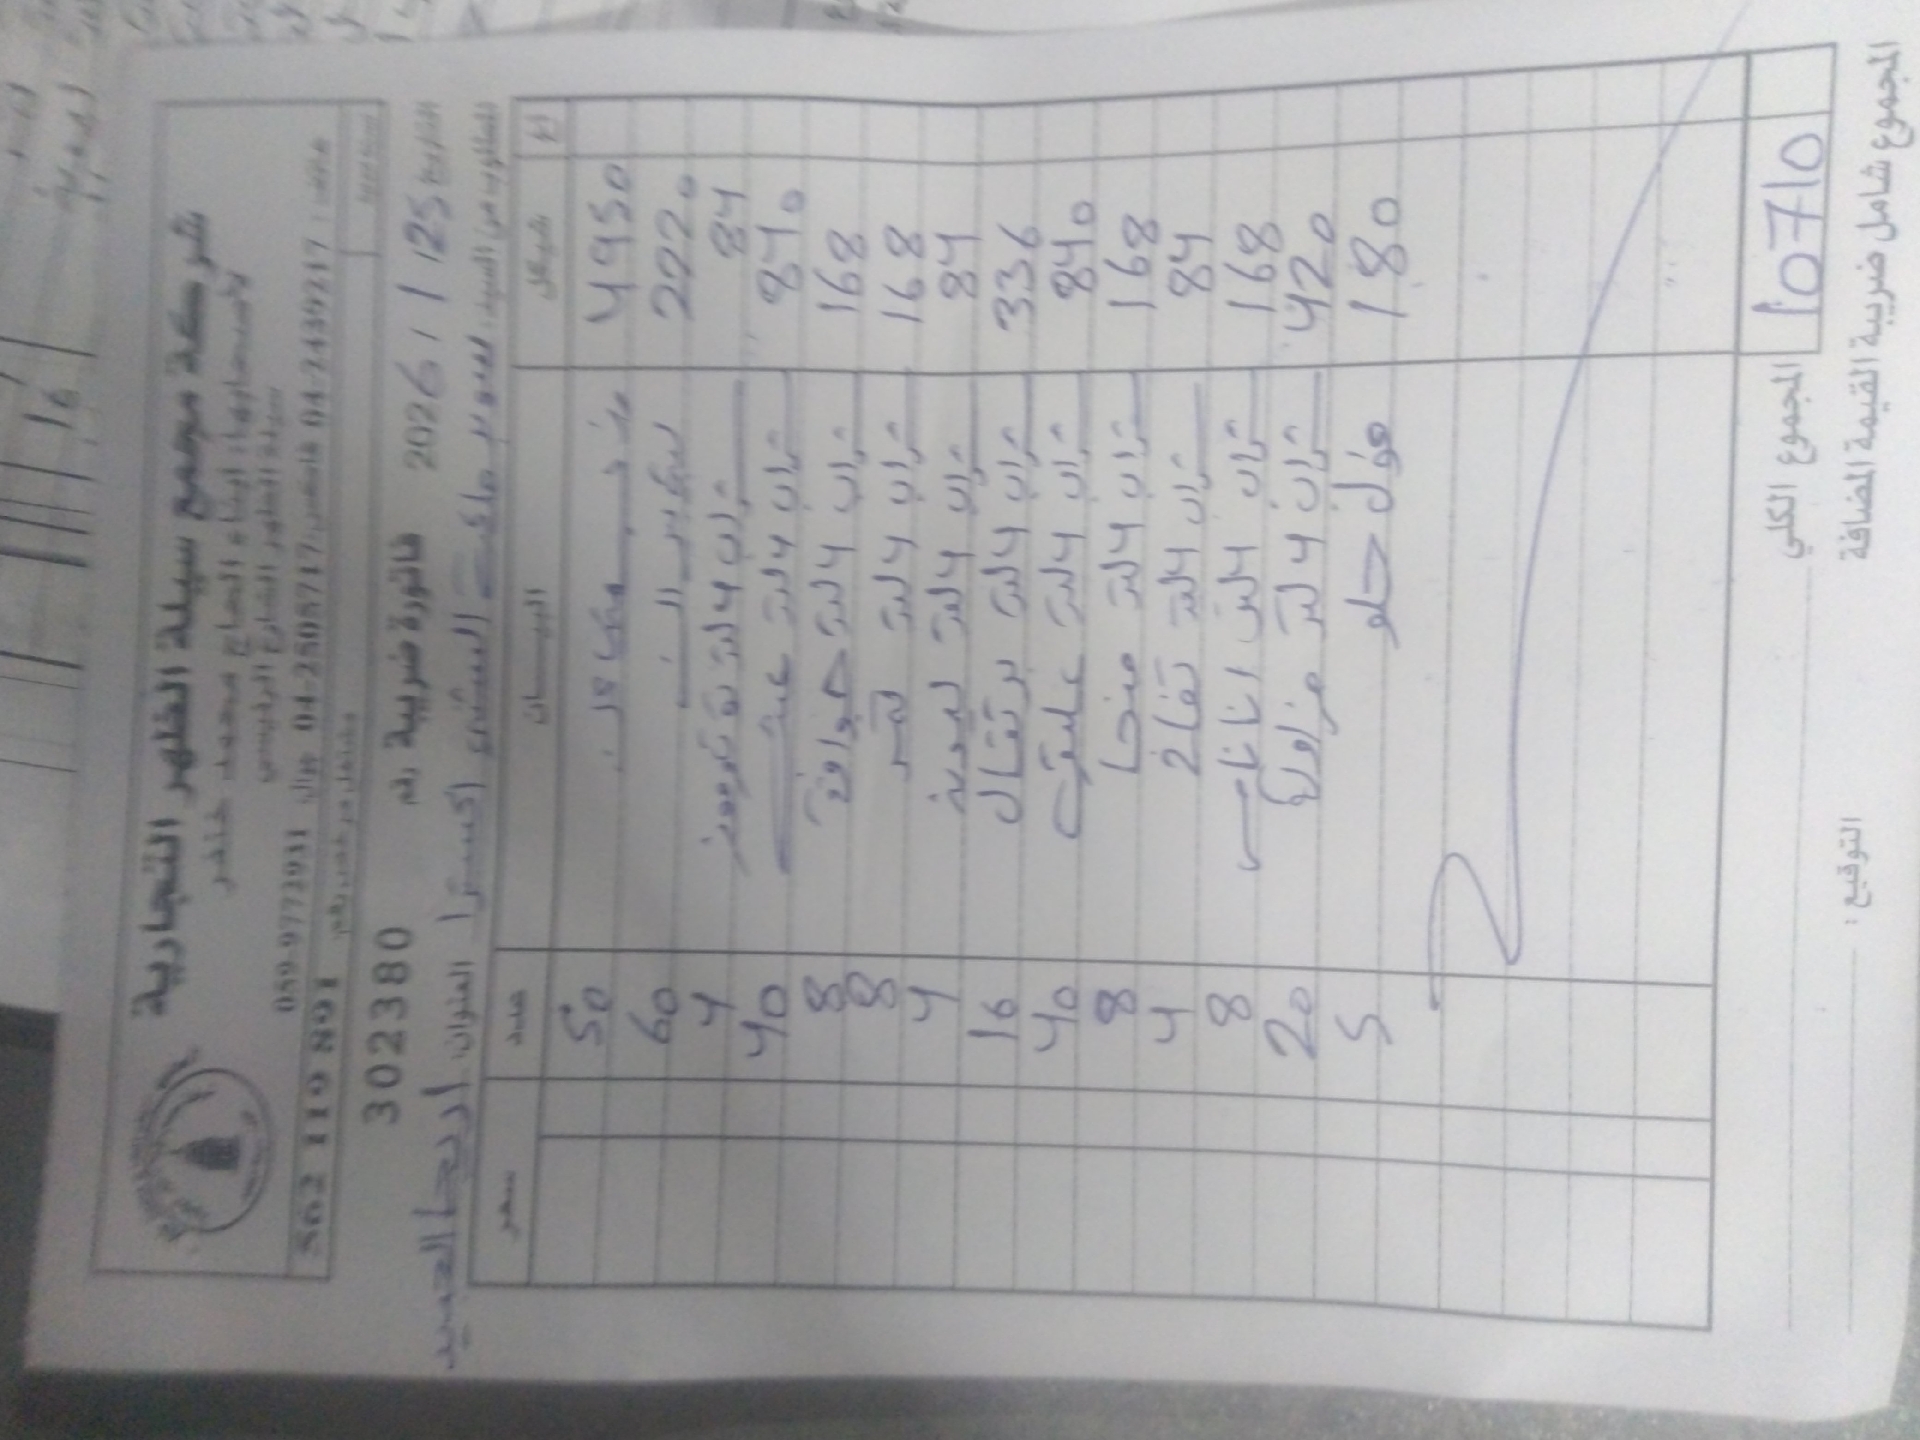 شركة مجمع سيلة الظهر التجارية
لصاحبها: أبناء الحاج محمد خضر
سيلة الظهر الشارع الرئيسي
هاتف: 04-2439217 فاكس: 04-2505717 جوال 059-9772931
مشتغل مرخص رقم 562 119 891
فاتورة ضريبية رقم 302380
التاريخ 2026 / 1 / 25
المطلوب من السيد: سوبر ماركت
العنوان: اريحا
شيكل البيان عدد سعر
4950 50
2220 60
84 شراب 4 لتر 4
840 شراب 4 لتر عنب 40
168 شراب 4 لتر جوافة 8
168 شراب 4 لتر تمر 8
84 شراب 4 لتر ليمون 4
336 شراب 4 لتر برتقال 16
840 شراب 4 لتر 40
168 شراب 4 لتر منجا 8
84 شراب 4 لتر تفاح 4
168 شراب 4 لتر اناناس 8
420 شراب 4 لتر فراولة 20
180 فول حلو 5
المجموع الكلي 10710
المجموع شامل ضريبة القيمة المضافة
التوقيع: